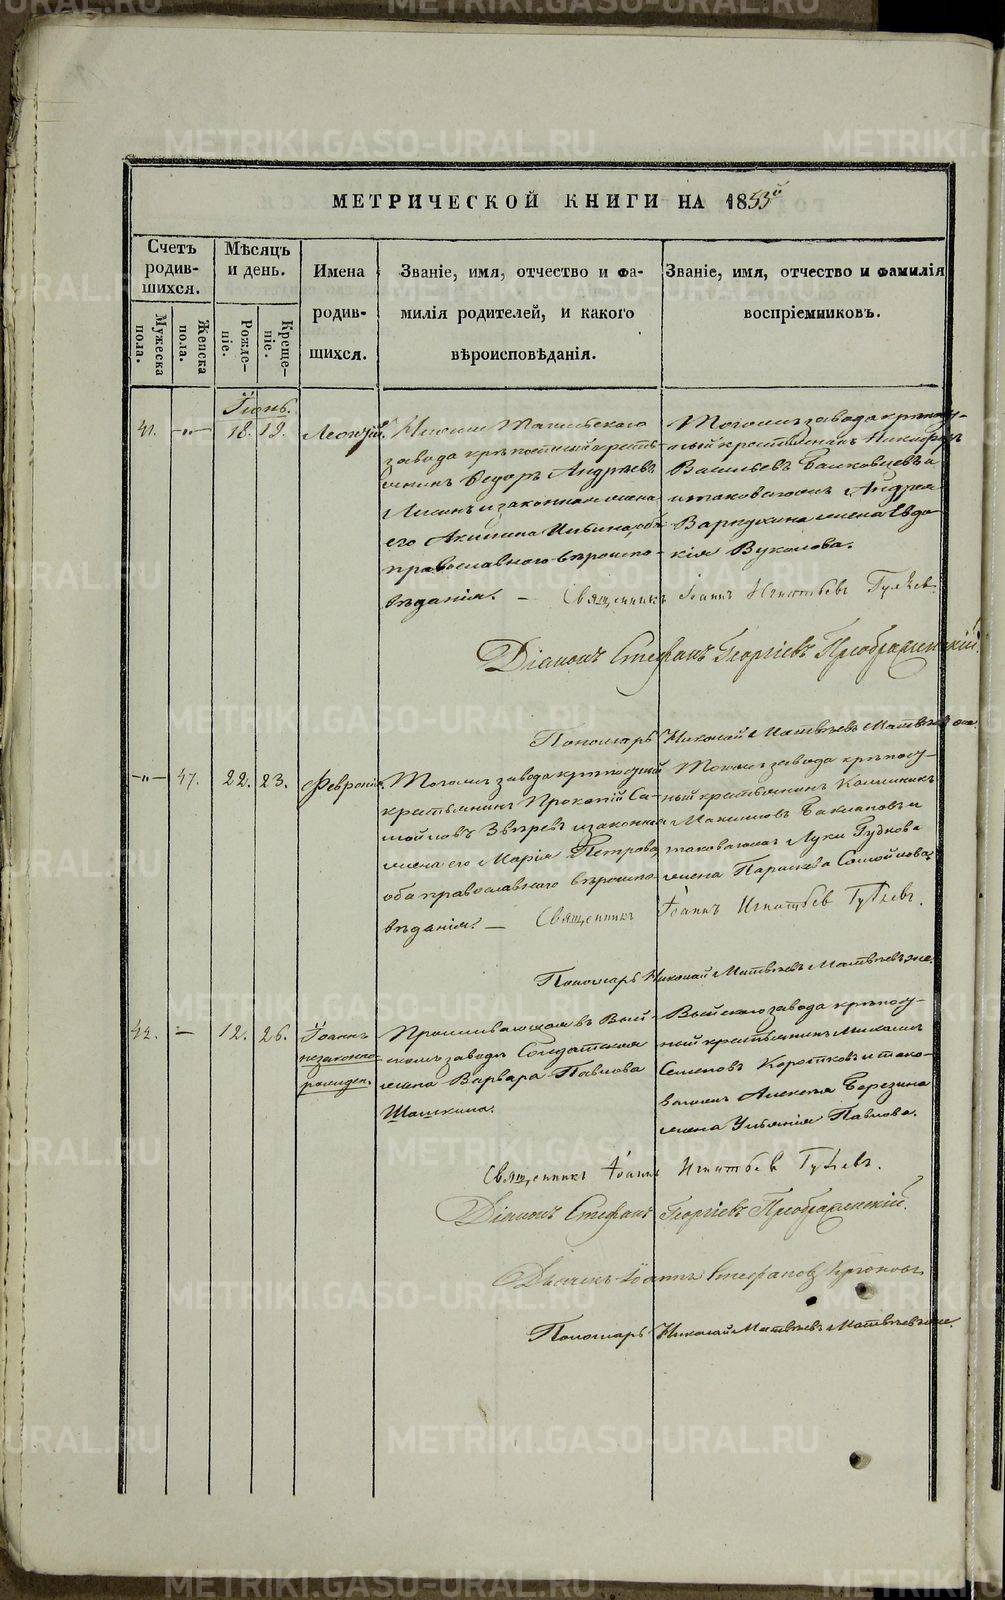 METRIKI.GASO-URAL.RU
МЕТРИЧЕСКОЙ КНИГИ НА 1853й
Счетъ родив-шихся.
Мужеска пола.
Женска пола.
Мѣсяцъ и день.
Рожде-ніе.
Креще-ніе.
Имена родив-шихся.
Званіе, имя, отчество и фа-
милія родителей, и какого
вѣроисповѣданія.
Званіе, имя, отчество и фамилія
воспріемниковъ.
Іюнь.
41. —"— 18. 19. Леонтій.
Нижне Тагильскаго
завода крѣпостный кресть-
янинъ Ѳедоръ Андреевъ
и законная жена
его Акилина Ильина, оба
православнаго вѣроиспо-
вѣданія. —
Тогожъ завода крѣпост-
ный крестьянинъ Никифоръ
Васильевъ
и таковагожъ Андрея
жена Евдо-
кія Вуколова.
Священникъ Іоаннъ Игнатьевъ
Діаконъ Стефанъ Георгіевъ Преображенскій.
Пономарь Николай Матвѣевъ Матвѣевъ же.
—"— 47. 22. 23. Февронія.
Тогожъ завода крѣпостный
крестьянинъ Прокопій Са-
мойловъ Звѣревъ и законная
жена его Марія Петрова,
оба православнаго вѣроиспо-
вѣданія. —
Тогожъ завода крѣпост-
ный крестьянинъ Калинникъ
Максимовъ Баклановъ и
таковагожъ Луки Губкова
жена Параскева Самойлова.
Священникъ Іоаннъ Игнатьевъ
Пономарь Николай Матвѣевъ Матвѣевъ же.
42. — 12. 26. Іоаннъ
незаконно-
рожден.
Проживающая въ Вый-
скомъ заводѣ Солдатская
жена Варвара Павлова
Шашкина.
Выйскаго завода крѣпост-
ный крестьянинъ Михаилъ
Семеновъ Коростковъ и тако-
вагожъ Алексѣя Березина
жена Ульянія Павлова.
Священникъ Іоаннъ Игнатьевъ
Діаконъ Стефанъ Георгіевъ Преображенскій.
Дьячекъ Іоаннъ Стефановъ
Пономарь Николай Матвѣевъ Матвѣевъ же.